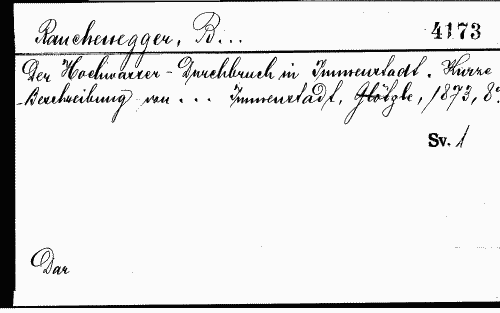 Rauchenegger, B... 4173
Der Hochwasser-Durchbruch in Immenstadt. Kurze
Beschreibung von ... Immenstadt, 1873, 8°.
Sv. 1
Dar